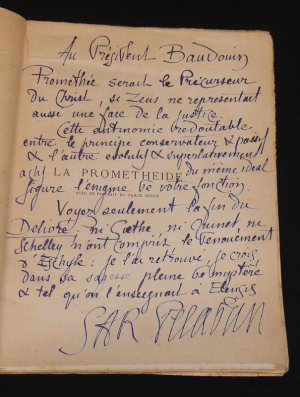 Au Président Baudouin
Prométhée serait le Précurseur
Du Christ, si Zeus ne représentait
aussi une face de la justice.
Cette antinomie redoutable
entre le principe conservateur & passif
& l'autre évolutif & superlativement
actif du même idéal
LA PROMÉTHÉIDE
figure l'énigme de votre fonction.
Voyez seulement la fin du
Délivré: ni Gœthe, ni Quinet, ni
Schelley n'ont compris le dénouement
d'Eschyle: je l'ai retrouvé, je crois
dans sa sagesse pleine de mystère
& tel qu'on l'enseignait à Eleusis
SAR Peladan